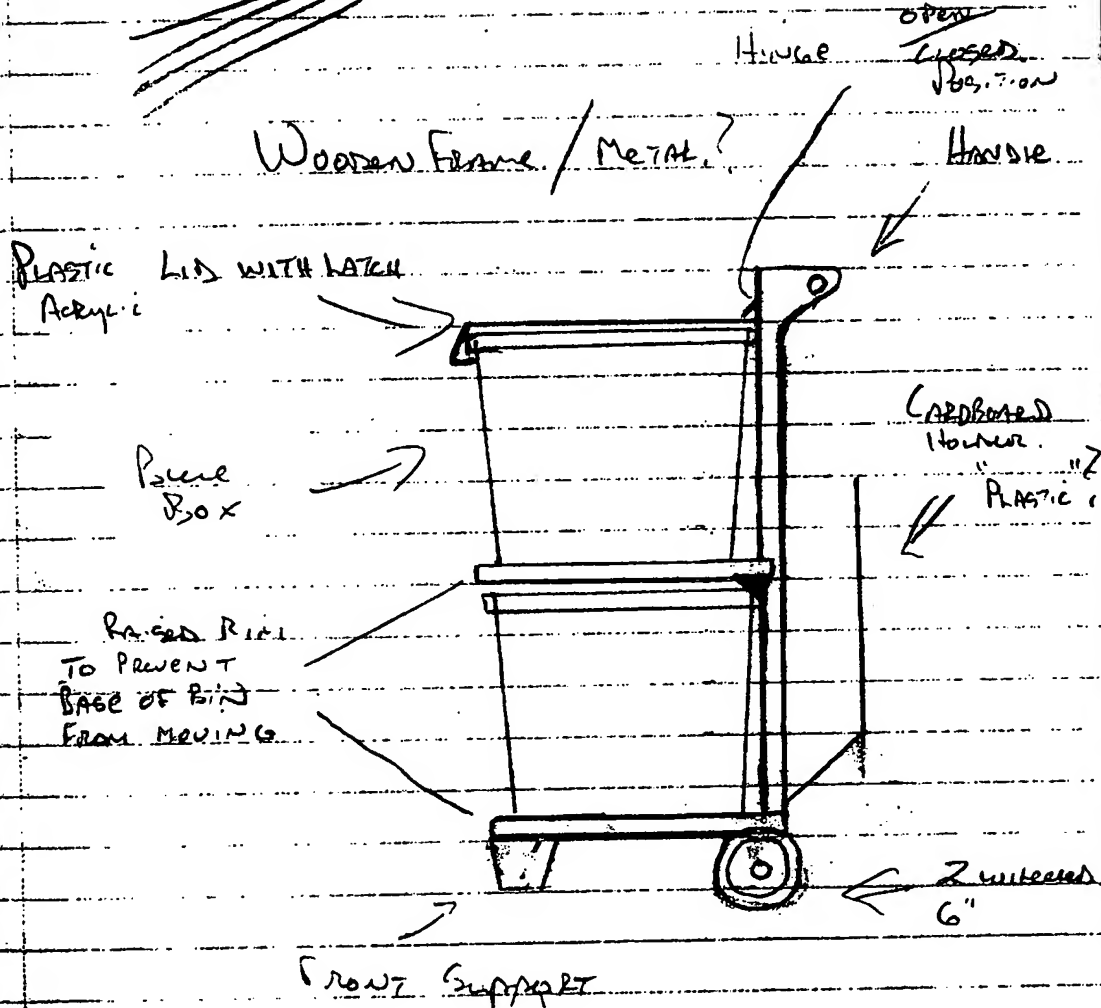 OPEN
CLOSED
POSITION
HINGE
WOODEN FRAME / METAL?
HANDLE
PLASTIC LID WITH LATCH
ACRYLIC
CARDBOARD
" PLASTIC "?
BOX
RAISED RIM
TO PREVENT
BASE OF BIN
FROM MOVING
2 WHEELED
6"
FRONT SUPPORT